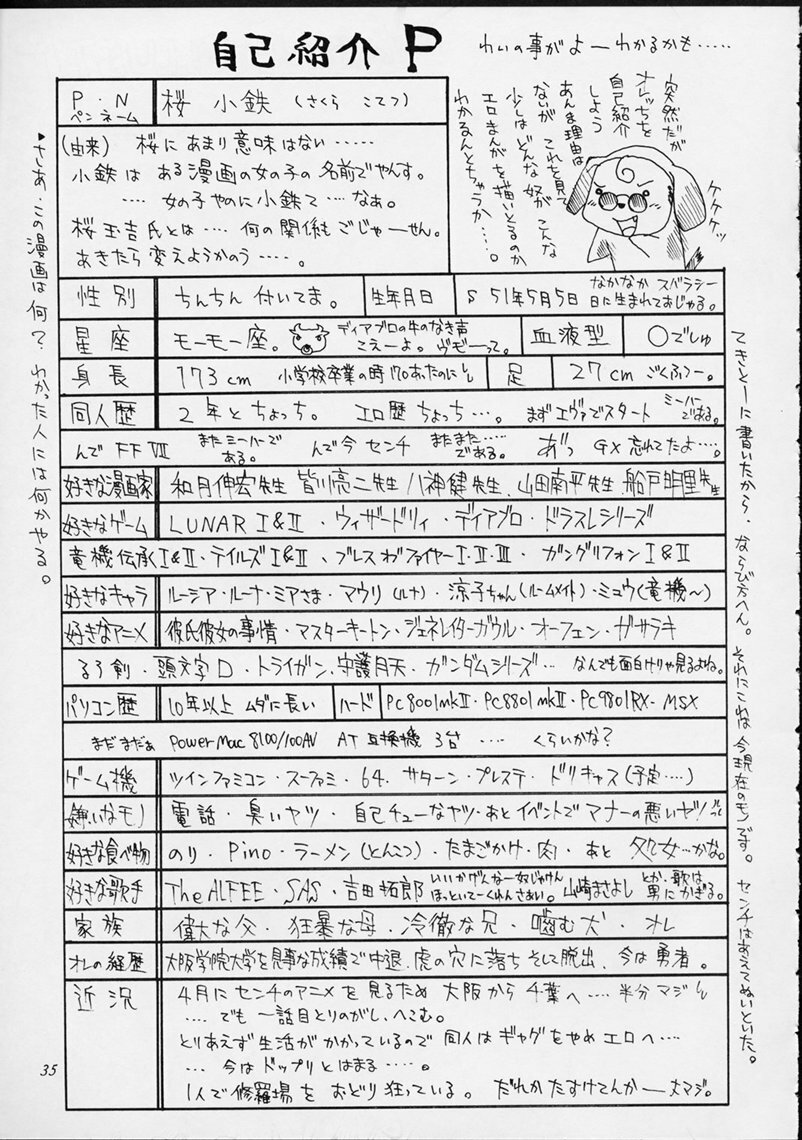 自己紹介 P
わいの事がよーわかるかも‥‥‥
突然だが
オレっちを
自己紹介
しよう
あんま理由は
ないが これを見て
少しはどんな奴が こんな
エロまんがを描いとるのか
わかるんとちゃうか‥‥。
ケケケッ
P・N
ペンネーム
桜 小鉄 (さくら こてつ)
(由来) 桜にあまり意味はない‥‥‥
小鉄は ある漫画の女の子の名前でやんす。
‥‥ 女の子やのに小鉄て‥‥なぁ。
桜玉吉氏とは‥‥ 何の関係もごじゃーせん。
あきたら変えようかのう‥‥。
性別 ちんちん 付いてま。 生年月日 S 51年5月5日 なかなか スバラシー
日に生まれておじゃる。
星座 モーモー座。 ディアブロの牛のなき声
こえーよ。ヴモーって。 血液型 ○でしゅ
身長 173cm 小学校卒業の時170あったのに 足 27cm ごくふつー。
同人歴 2年とちょっち。 エロ歴ちょっち‥‥。 まずエヴァでスタート ミーハー
である。
んで FF VII またミーハーで
ある。 んで今 センチ またまた‥‥
である。 あっ GX 忘れてたよ‥‥。
好きな漫画家 和月伸宏先生 皆川亮二先生 八神健先生、山田南平先生、船戸明里先生
好きなゲーム LUNAR I&II ・ ウィザードリィ ・ ディアブロ ・ ドラスレシリーズ
竜機伝承I&II・テイルズI&II 、ブレス オブ ファイヤーI・II・III ・ ガングリフォンI&II
好きなキャラ ルーシア・ルーナ・ミアさま・マウリ(ルナ)・涼子ちゃん(ルームメイト)・ミュウ(竜機〜)
好きなアニメ 彼氏彼女の事情・マスターキートン・ジェネレイターガウル・オーフェン・ガサラキ
るろ剣・頭文字D・トライガン、守護月天・ガンダムシリーズ‥‥ なんでも面白けりゃ見るよね。
パソコン歴 10年以上 ムダに長い ハード PC8001mkII・PC8801mkII・PC9801RX・MSX
まだまだぁ Power Mac 8100/100AV AT 互換機 3台 ‥‥ くらいかな?
ゲーム機 ツインファミコン・スーファミ・64、サターン・プレステ・ドリキャス(予定‥‥)
嫌いなモノ 電話・臭いヤツ・自己チューなヤツ・あとイベントでマナーの悪いヤツ!
好きな食べ物 のり・Pino・ラーメン(とんこつ)・たまごかけ・肉・あと 処女‥‥かな。
好きな歌手 The ALFEE・SAS・吉田拓郎 いいかげんなー奴じゃけん
ほっといてーくれんさあい。 山崎まさよし とか、歌は
男にかぎる。
家族 偉大な父・狂暴な母・冷徹な兄・噛む犬・オレ
オレの経歴 大阪学院大学を見事な成績で中退、虎の穴に落ち そして脱出、今は勇者。
近況 4月にセンチのアニメを見るため 大阪から千葉へ‥‥ 半分マジ
‥‥ でも 一話目とりのがし、へこむ。
とりあえず生活がかかっているので 同人はギャグをやめ エロへ‥‥
‥‥ 今はドップリとはまる‥‥‥。
1人で修羅場を おどり狂っている。 だれかたすけてんかー 大マジ。
てきとーに書いたから、ならび方へん。それにこれは今現在のモンです。センチはあえてぬいといた。
♥さあ、この漫画は何? わかった人には何かやる。
35